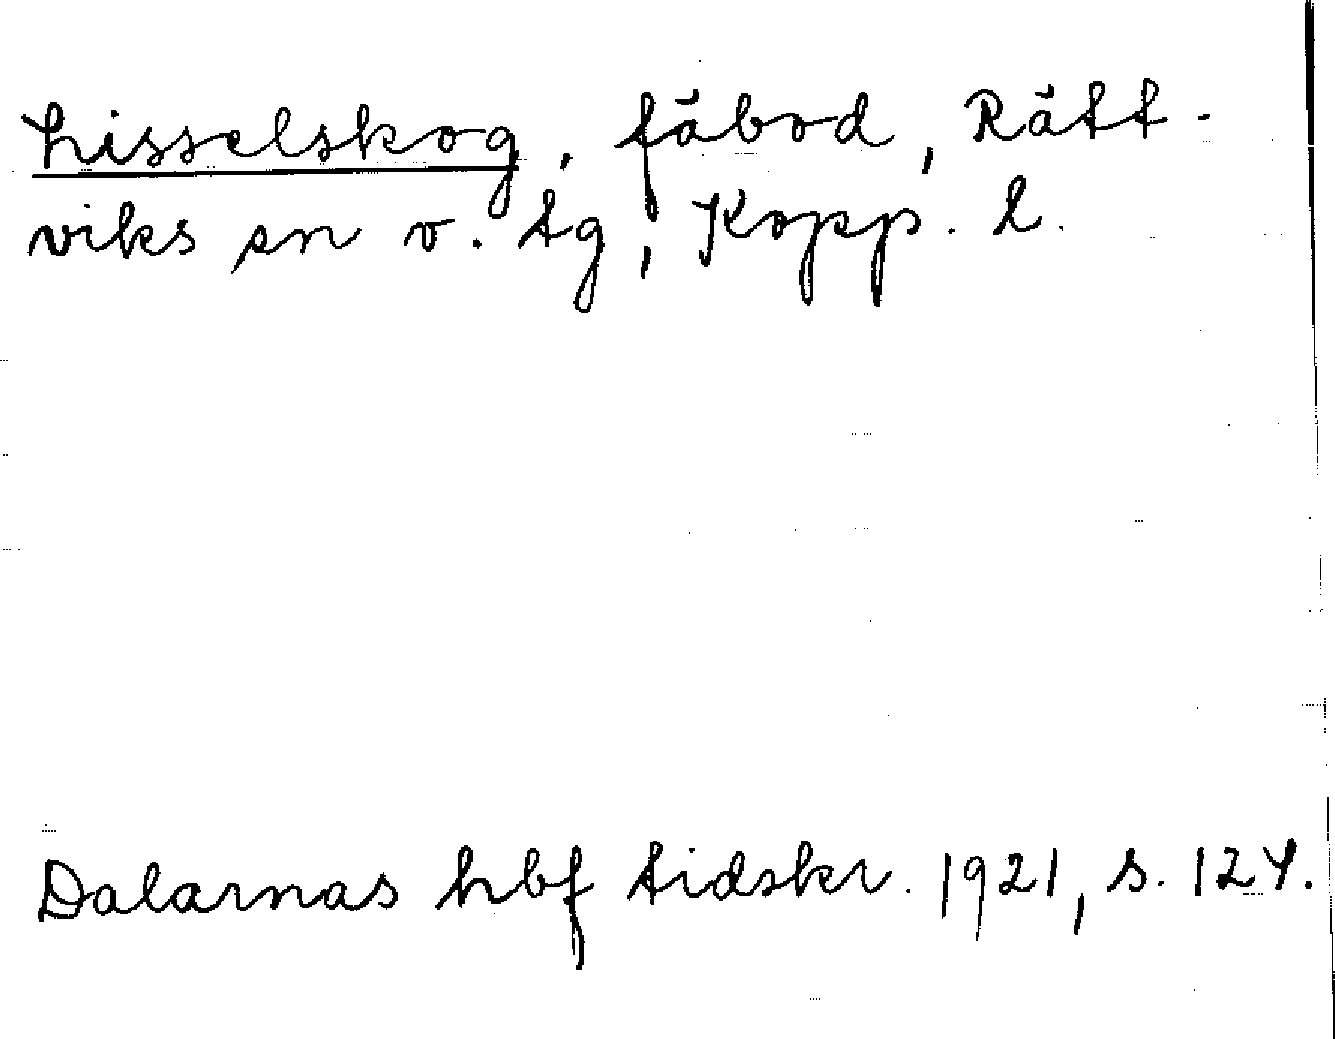 Lisselskog, fäbod, Rätt-
viks sn v. tg, Kopp. l.
Dalarnas hbf tidskr. 1921, s. 124.